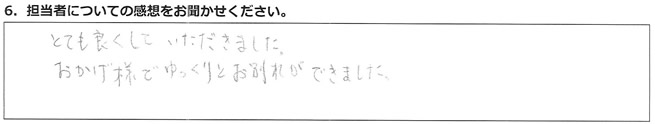 6. 担当者についての感想をお聞かせください。
とても良くして いただきました。
おかげ様でゆっくりとお別れができました。